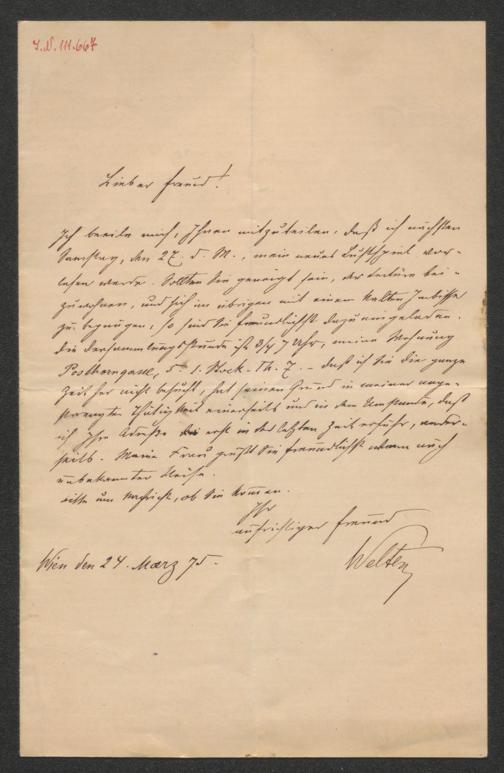 I.N. 111.667
Lieber Freund!
Ich beeile mich, Ihnen mitzuteilen, daß ich nächsten
Samstag, den 27. d. M., mein neues Lustspiel vor-
lesen werde. Sollten Sie geneigt sein, der Lectüre bei-
zuwohnen, und sich im übrigen mit einem kalten Imbisse
zu begnügen, so sind Sie freundlichst dazu eingeladen.
Die Versammlungsstunde ist 3/4 7 Uhr, meine Wohnung
Posthorngasse, 5 1. Stock. Th. 7. – daß ich Sie die ganze
Zeit her nicht besucht, hat seinen Grund in meiner ange-
strengten Thätigkeit einerseits und in dem Umstande, daß
ich Ihre Adresse erst in der letzten Zeit erfuhr, ander-
seits. Meine Frau grüßt Sie freundlichst wenn auch
unbekannter Weise.
Bitte um Nachricht, ob Sie kommen.
Ihr
aufrichtiger Freund
Welten
Wien den 24. März 75.